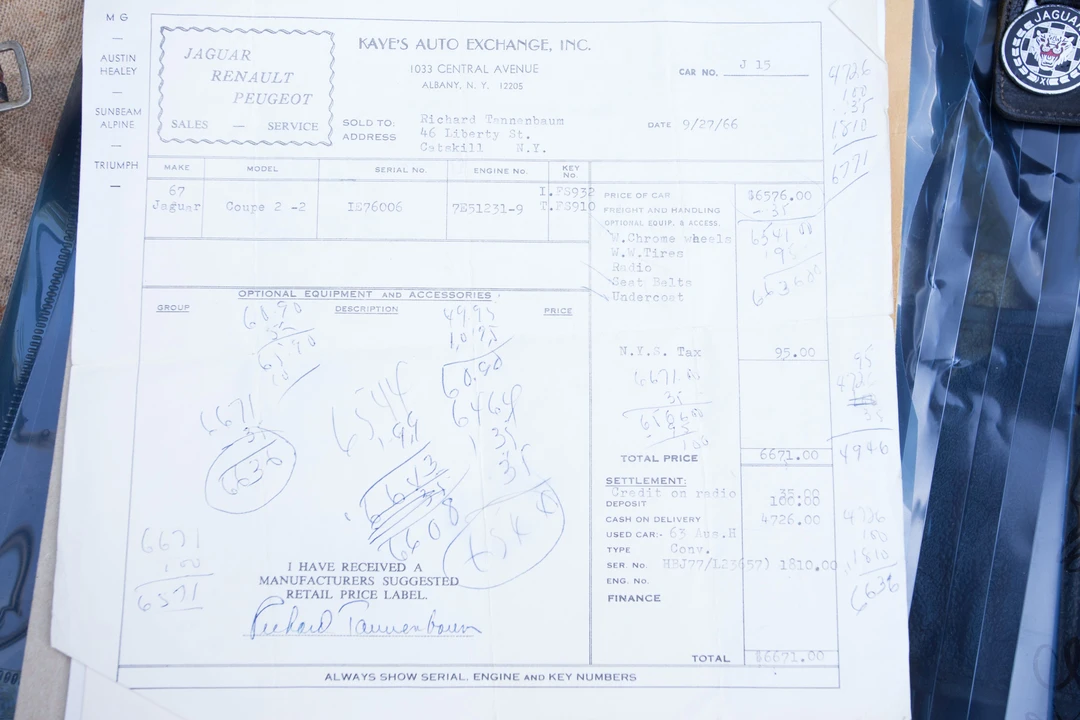 M G
—
AUSTIN
HEALEY
—
SUNBEAM
ALPINE
—
TRIUMPH
—
JAGUAR
RENAULT
PEUGEOT
SALES — SERVICE
KAYE'S AUTO EXCHANGE, INC.
1033 CENTRAL AVENUE
ALBANY, N. Y. 12205
CAR NO. J 15
SOLD TO: Richard Tannenbaum
ADDRESS 46 Liberty St.
Catskill N.Y.
DATE 9/27/66
JAGUAR
4726
100
35
1810
6771
MAKE MODEL SERIAL No. ENGINE No. KEY No.
67 I.FS932
Jaguar Coupe 2 -2 IE76006 7E51231-9 T.FS910
PRICE OF CAR $6576.00
FREIGHT AND HANDLING - 35
OPTIONAL EQUIP. & ACCESS. 6541 00
W.Chrome wheels 95
W.W.Tires
Radio 6636 00
Seat Belts
Undercoat
OPTIONAL EQUIPMENT AND ACCESSORIES
GROUP DESCRIPTION PRICE
N.Y.S. Tax 95.00
6671.00
35
95
4726
35
4946
TOTAL PRICE 6671.00
6671
35
6636
SETTLEMENT:
Credit on radio 35.00
DEPOSIT 100.00
CASH ON DELIVERY 4726.00
USED CAR:- 63 Aus.H
TYPE Conv.
SER. No. HBJ77/L23657) 1810.00
ENG. No.
FINANCE
4726
100
1810
6636
6671
100
6571
I HAVE RECEIVED A
MANUFACTURERS SUGGESTED
RETAIL PRICE LABEL.
Richard Tannenbaum
TOTAL $6671.00
ALWAYS SHOW SERIAL, ENGINE AND KEY NUMBERS